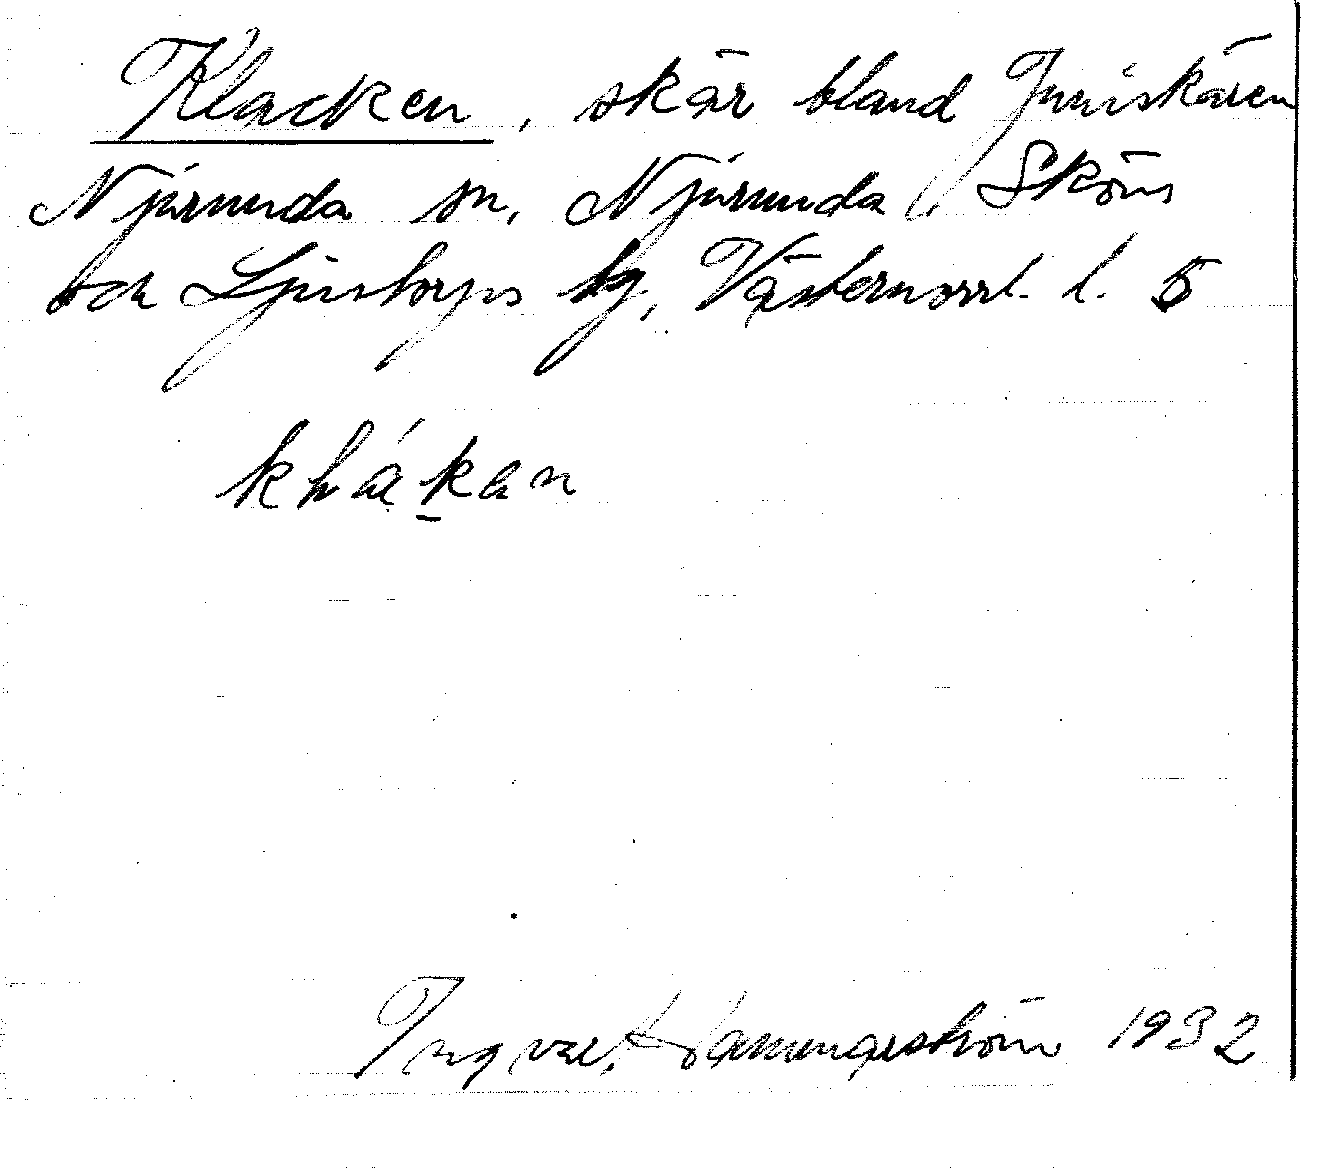 Klacken, skär bland Juniskären
Njurunda sn, Njurunda, Sköns
och Ljustorps tg, Västernorrl. l. 5
khákan
Ingvar 1932